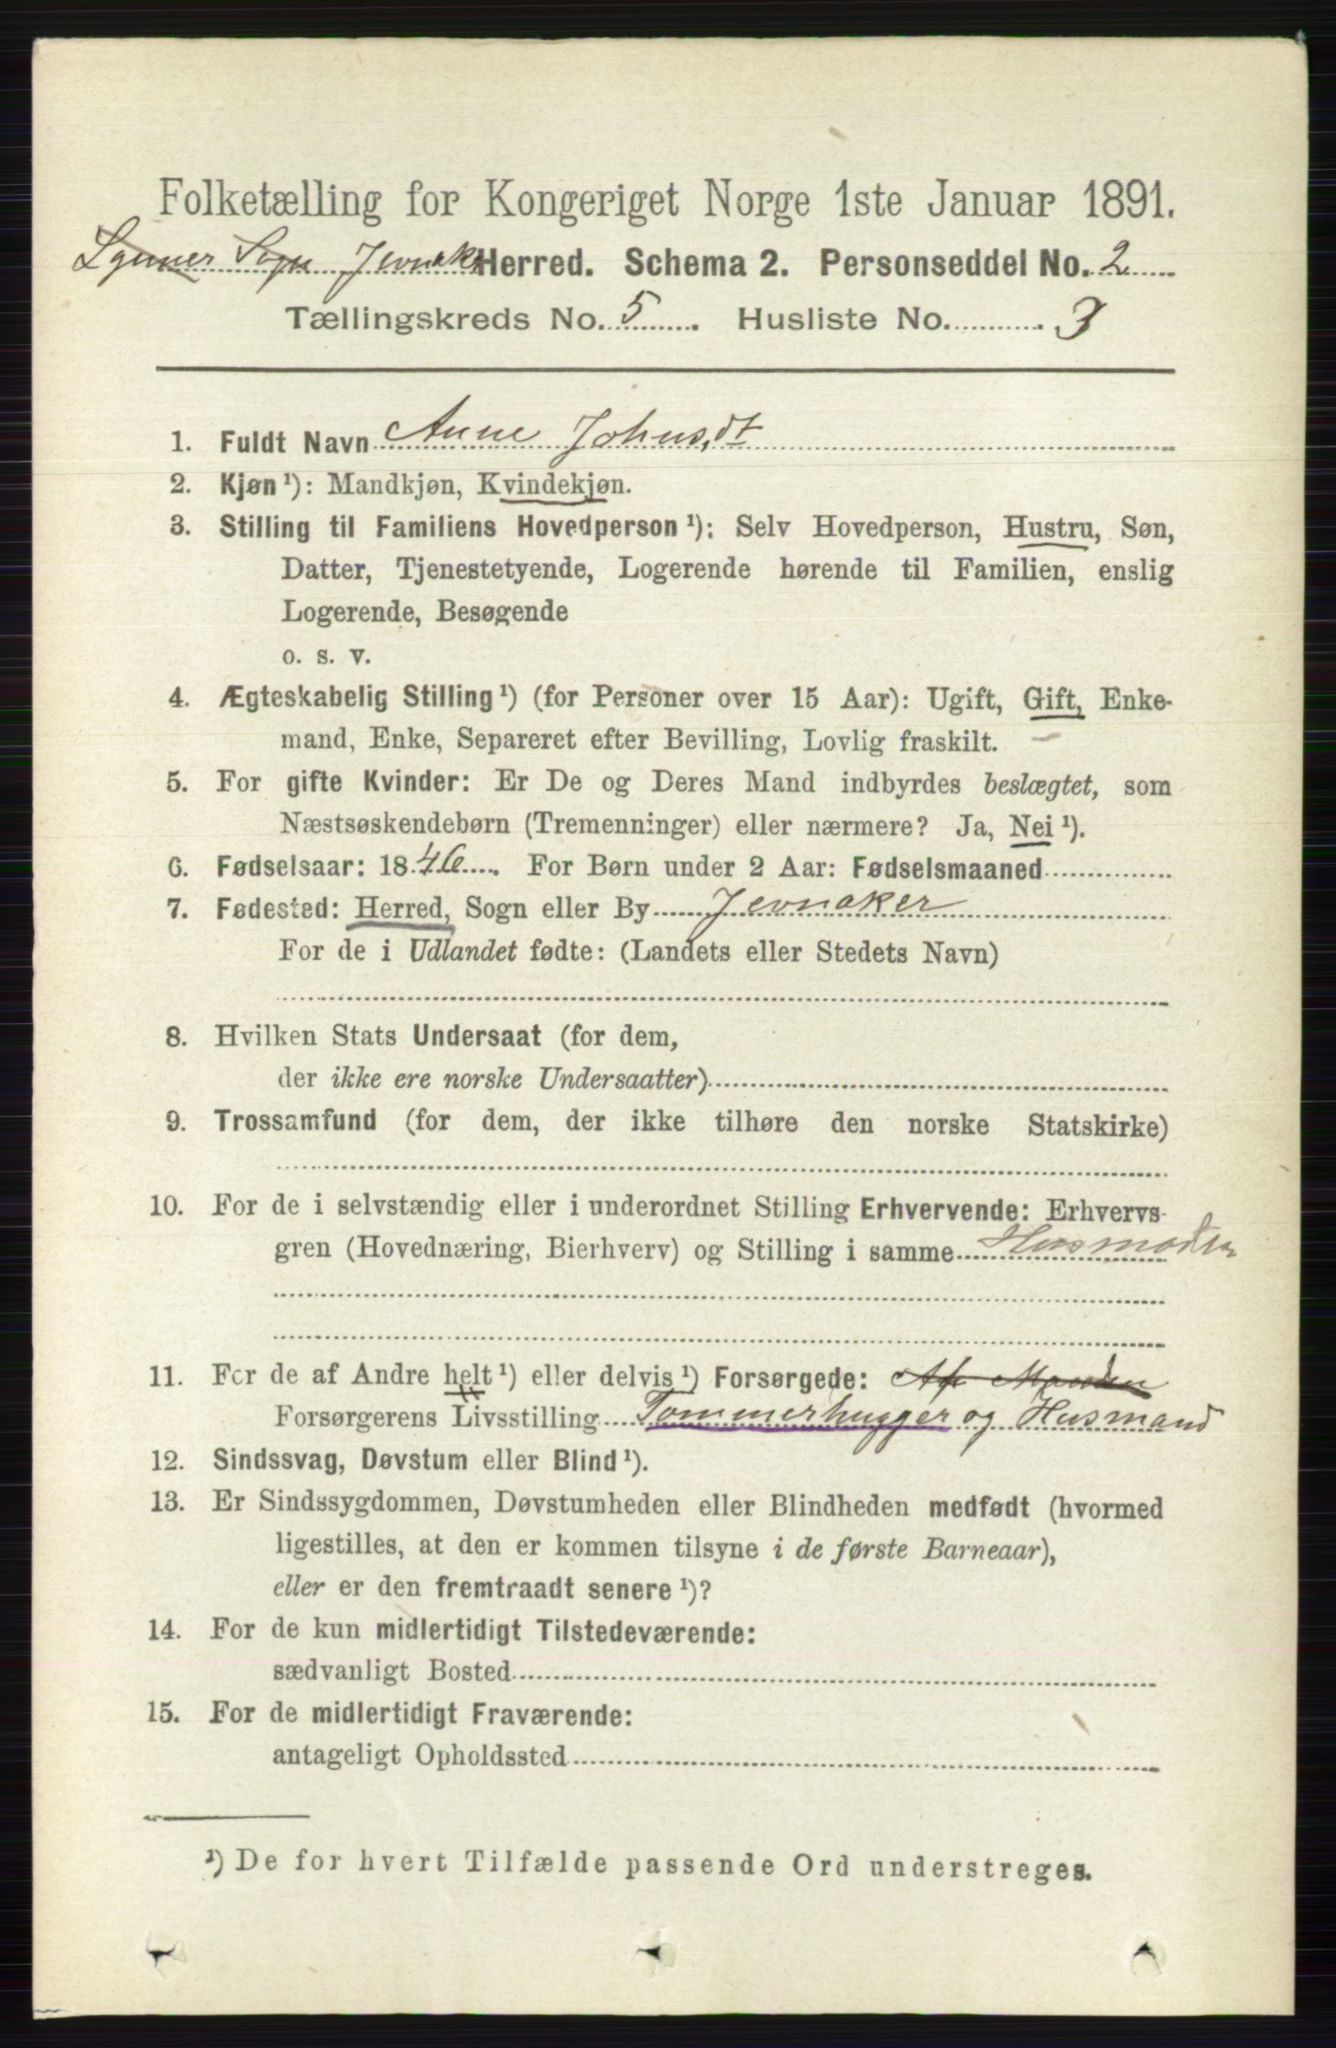 Folketælling for Kongeriget Norge 1ste Januar 1891.
Lynner Sogn Jevnaker Herred. Schema 2. Personseddel No. 2
Tællingskreds No. 5. Husliste No. 3
1. Fuldt Navn Anne Johnsdt
2. Kjøn ¹): Mandkjøn, Kvindekjøn.
3. Stilling til Familiens Hovedperson ¹): Selv Hovedperson, Hustru, Søn,
Datter, Tjenestetyende, Logerende hørende til Familien, enslig
Logerende, Besøgende
o. s. v.
4. Ægteskabelig Stilling ¹) (for Personer over 15 Aar): Ugift, Gift, Enke-
mand, Enke, Separeret efter Bevilling, Lovlig fraskilt.
5. For gifte Kvinder: Er De og Deres Mand indbyrdes beslægtet, som
Næstsøskendebørn (Tremenninger) eller nærmere? Ja, Nei ¹).
6. Fødselsaar: 1846. For Børn under 2 Aar: Fødselsmaaned
7. Fødested: Herred, Sogn eller By Jevnaker
For de i Udlandet fødte: (Landets eller Stedets Navn)
8. Hvilken Stats Undersaat (for dem,
der ikke ere norske Undersaatter)
9. Trossamfund (for dem, der ikke tilhøre den norske Statskirke)
10. For de i selvstændig eller i underordnet Stilling Erhvervende: Erhvervs-
gren (Hovednæring, Bierhverv) og Stilling i samme Husmoder
11. For de af Andre helt ¹) eller delvis ¹) Forsørgede: Af Manden
Forsørgerens Livsstilling Tommerhugger og Husmand
12. Sindssvag, Døvstum eller Blind ¹).
13. Er Sindssygdommen, Døvstumheden eller Blindheden medfødt (hvormed
ligestilles, at den er kommen tilsyne i de første Barneaar),
eller er den fremtraadt senere ¹)?
14. For de kun midlertidigt Tilstedeværende:
sædvanligt Bosted
15. For de midlertidigt Fraværende:
antageligt Opholdssted
¹) De for hvert Tilfælde passende Ord understreges.